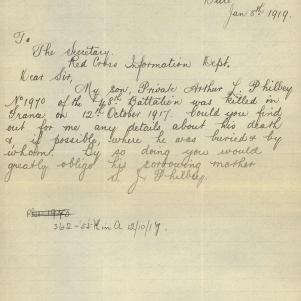 Jan 8th 1919.
To
The Secretary.
Red Cross Information Dept.
Dear Sir,
My son, Private Arthur L. Philbey
No 1970 of the 48th Battalion was killed in
France on 12th October 1917. Could you find
out for me any details about his death
& if possible, where he was buried & by
whom. By so doing you would
greatly oblige his sorrowing mother
J Philbey.
362-55
K in A 12/10/17